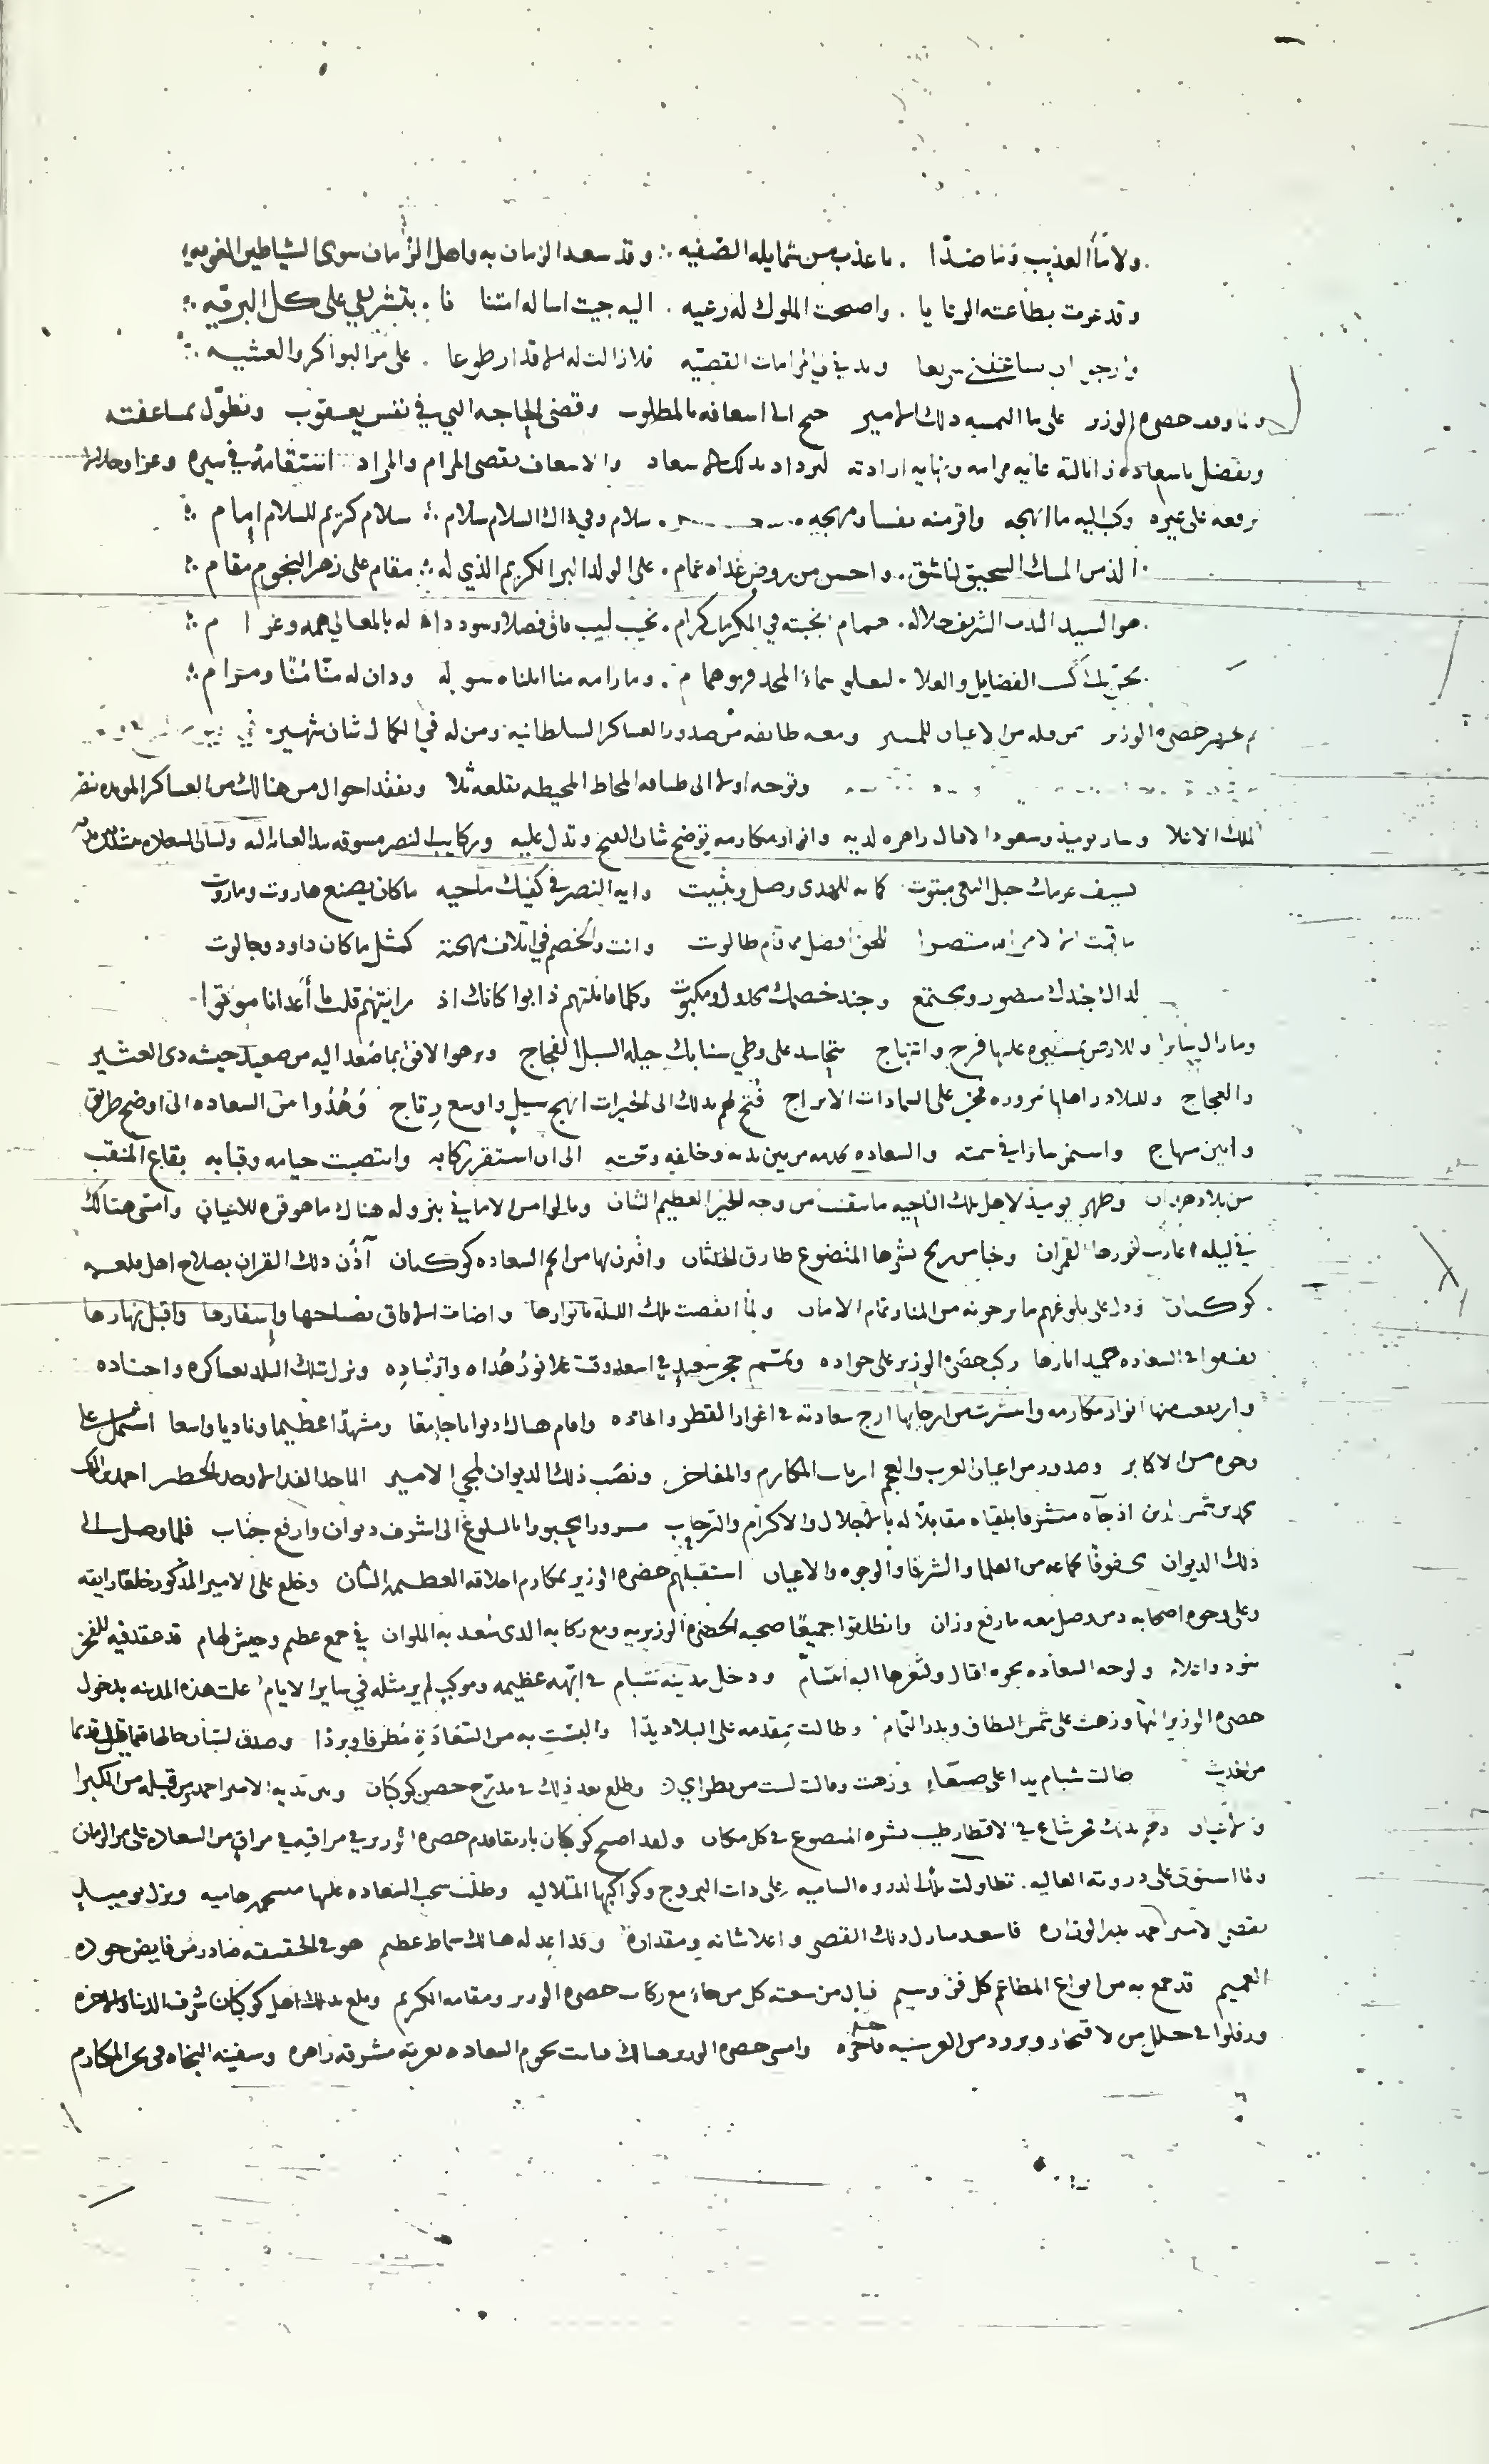 ولا ماء العذيب وما صدّا . ما عذب من شمايله الصفيه ؛ وقد سعد الزمان به واهل الزمان سوى الشياطين الغويه
وقد عوت بطاعته الرعايا . واصحت الملوك له رعيه . اليه جيت اساله امتنا نا . بتشريفي على كل البريه
وارجو ان يساعفني سريعا ويدنيني المرامات القصيّه فلا زالت له الاقدار طوعا . على مرّ البواكر والعشيه
ولما وقف حضرة الوزير على ما التمسه ذلك الامير جنح الى اسعافه بالمطلوب وقضى الحاجه التي في نفس يعقوب وتطوّل بمساعفته
وتفضل باسعاده وانالته غايه مرامه ونهايه ارادته ليزداد بذلك الاسعاد والاسعاف بقصى المرام والمراد استقامة في سيره وعزا وجلالا
يرفعه على غيره وكتب اليه ما ابهجه واقر منه نفسا ومهجه . سلام وفي ذاك السلام سلام ؛ سلام كريم للسلام امام
الذ من المسك السحيق لناشق . واحسن من روض غداه غمام . على الولد البر الكريم الذي له ؛ مقام على زهر النجوم مقام
هو السيد الندب الشريف جلاله . همام نجبته في المكرمات كرام . نجيب لبيب فاق فضلا وسودد داه له بالمعالي همه وغرا م
الفضايل والعلا . ليعلو سماء المجد فهو همام . وما رامه منا انلناه سوله ودان له منّا مُنًا ومرام
ثم تجهز حضرة الوزير بمن قبله من الاعيان للمسير ومعه طائفه من صدور العساكر السلطانيه ومن له في الكمال شان شهير
وتوجه اولا الى المحاط المحيطه بقلعه ثلا وتفقد احوال من هنالك من العساكر المويده بنصر
الملك الاعلا وسار يوميذ وسعود الاقبال زاهره لديه وانوار مكارمه توضح شان الفتح وتدل عليه وركايب النصر مسوقه
بسيف عزمك حبل البغى مبتوت كما به للهدى وصل وتثبيت وايه النصر في كفيك ماحيه ما كان يصنع هاروت وماروت
ما قمت لله منتصرا للحق افضل مما قام طالوت وانت والخصم في اتلاف مهجته كمثل ما كان داود وجالوت
لذاك جندك منصور ومجتمع وجند خصمك مخذول ومكبوت وكلما قابلتهم ذابوا كانك اذ رايتهم قلت يا اعدانا موتوا
وما زال سايرا وللارض بمسيره عليها فرح وابتهاج تتحاسد على وطي سنابك خيله السبل والفجاج ويزهو الافق بما صعد اليه من صعيد جيشه ذى العثير
والعجاج وللبلاد واهلها بمروره فخر على السماوات الابراج فُتح لهم بذلك الى الخيرات انهج سبيل واوسع رِتاج وهُدُوا من السعاده الى اوضح طريق
وابين منهاج واستمر سايرا في سمته والسعاده من بين يديه وخلفه وتحته الى ان استقر ركابه وانتصبت خيامه وقبابه بقاع المنقب
من بلاد وظهر يوميذ لاهل تلك الناحيه من وجه الخير العظيم الشان ونالوا من الامانى بنزوله هناك ما هو قره للاعيان وامسى هنالك
في ليله اغارت لنورها القمران وخبا من ريح نشرها المتضوع طارق الحدثان واقترن بها من انجم السعاده كوكبان آذن ذلك القران بصلاح اهل قلعه
كوكبان ودل على بلوغهم ما يرجونه من المنا وتمام الامان ولما انقضت تلك الليله بانوارها واضات الافاق بصباحها واسفارها واقبل نهارها
يقفوا في السعاده حميد اثارها ركب حضرة الوزير على جواده ويمّم حجر سعيد في اسعد وقت علا نور هُداه وارشاده ونزل بتلك البلد بعساكره واجناده
وارتفعت منها انوار مكارمه وانتشرت من ارجايها ارج سعادته في اغوار القطر وانجاده واقام هنالك ديوانا جامعا ومشهدًا عظيما وناديا واسعا اشتمل على
وجوه من الاكابر وصدور من اعيان العرب والعجم ارباب المكارم والمفاخر ونصَب ذلك الديوان لمجي الامير الماجد الاوحد الخطير احمد بن
محمد بن شمس الدين اذ جآه متشرفا بلقياه مقابلاً له بالاجلال والاكرام والترحاب مسرورا محبورا بالبلوغ الى اشرف ديوان وارفع جناب فلما وصل الى
ذلك الديوان محفوفًا بجماعه من العلما والشرفا والوجوه والاعيان استقبلهم حضره الوزير بمكارم اخلاقه العظيمة الشان وخلع على الامير المذكور خلعًا رايقه
وعلى وجوه اصحابه ومن وصل معه ما رفع وزان وانطلقوا جميعًا صحبه الحضرة الوزيريه ومع ركابه الذى سُعد به الملوان في جمع عظيم وجيش لهام قد عقد فيه للفخر
بنود واعلام ولوجه السعاده نحوه اقبال ولثغرها اليه ابتسام ودخل مدينه شبام في ابّهه عظيمه وموكب لم ير مثله في ساير الايام علت هذه المدينه بدخول
حضره الوزير اليها وزهت على شمس الطاف وبدر التمام وطالت بمقدمه على البلاد يدًا والبست به من السعادة مُطرفا وبردًا وصدق لسان حالها فيما قيل قديما
من حديث طالت شبام يدا على صنعاء وزهت وقالت لست من نظراي وطلع بعد ذلك في مدرّج حصن كوكبان وبين يديه الامير احمد ومن قبله من الكبرا
والاعيان وفخر بذلك فخر شاع في الاقطار طيب نشره المتضوع في كل مكان ولقد اصبح كوكبان بارتقا قدم حضره الوزير في مراقيه في مراق من السعاده على مر الزمان
ولما استوى على ذروته العاليه . تطاولت تلك الذروه الساميه على ذات البروج وكواكبها المتلاليه وظلّت سحب السعاده عليها هاميه ونزل يوميذ
بقصر الامير احمد الوزاره فاسعد منازل ذلك القصر واعلا شانه ومقداره وقد اعد له هنالك سماط عظيم هو في الحقيقه صادر من فايض جوده
العميم قد جمع به من انواع المطاعم كل فخر وسيم فنال من سعته كل من جاء مع ركاب حضره الوزير ومقامه الكريم وبلغ بذلك اهل كوكبان شرف الدنيا والاخره
ورفلوا في حلل من الافتخار وبرود من العز سنيه فاخره وامسى حضره الوزير هنالك فباتت نجوم السعاده بقربه مشرقه زاهره وسفينه النجاه في بحر المكارم